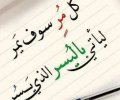 كل مُرٍ سوف يمر
ليأتي باليُسر الذي يسر